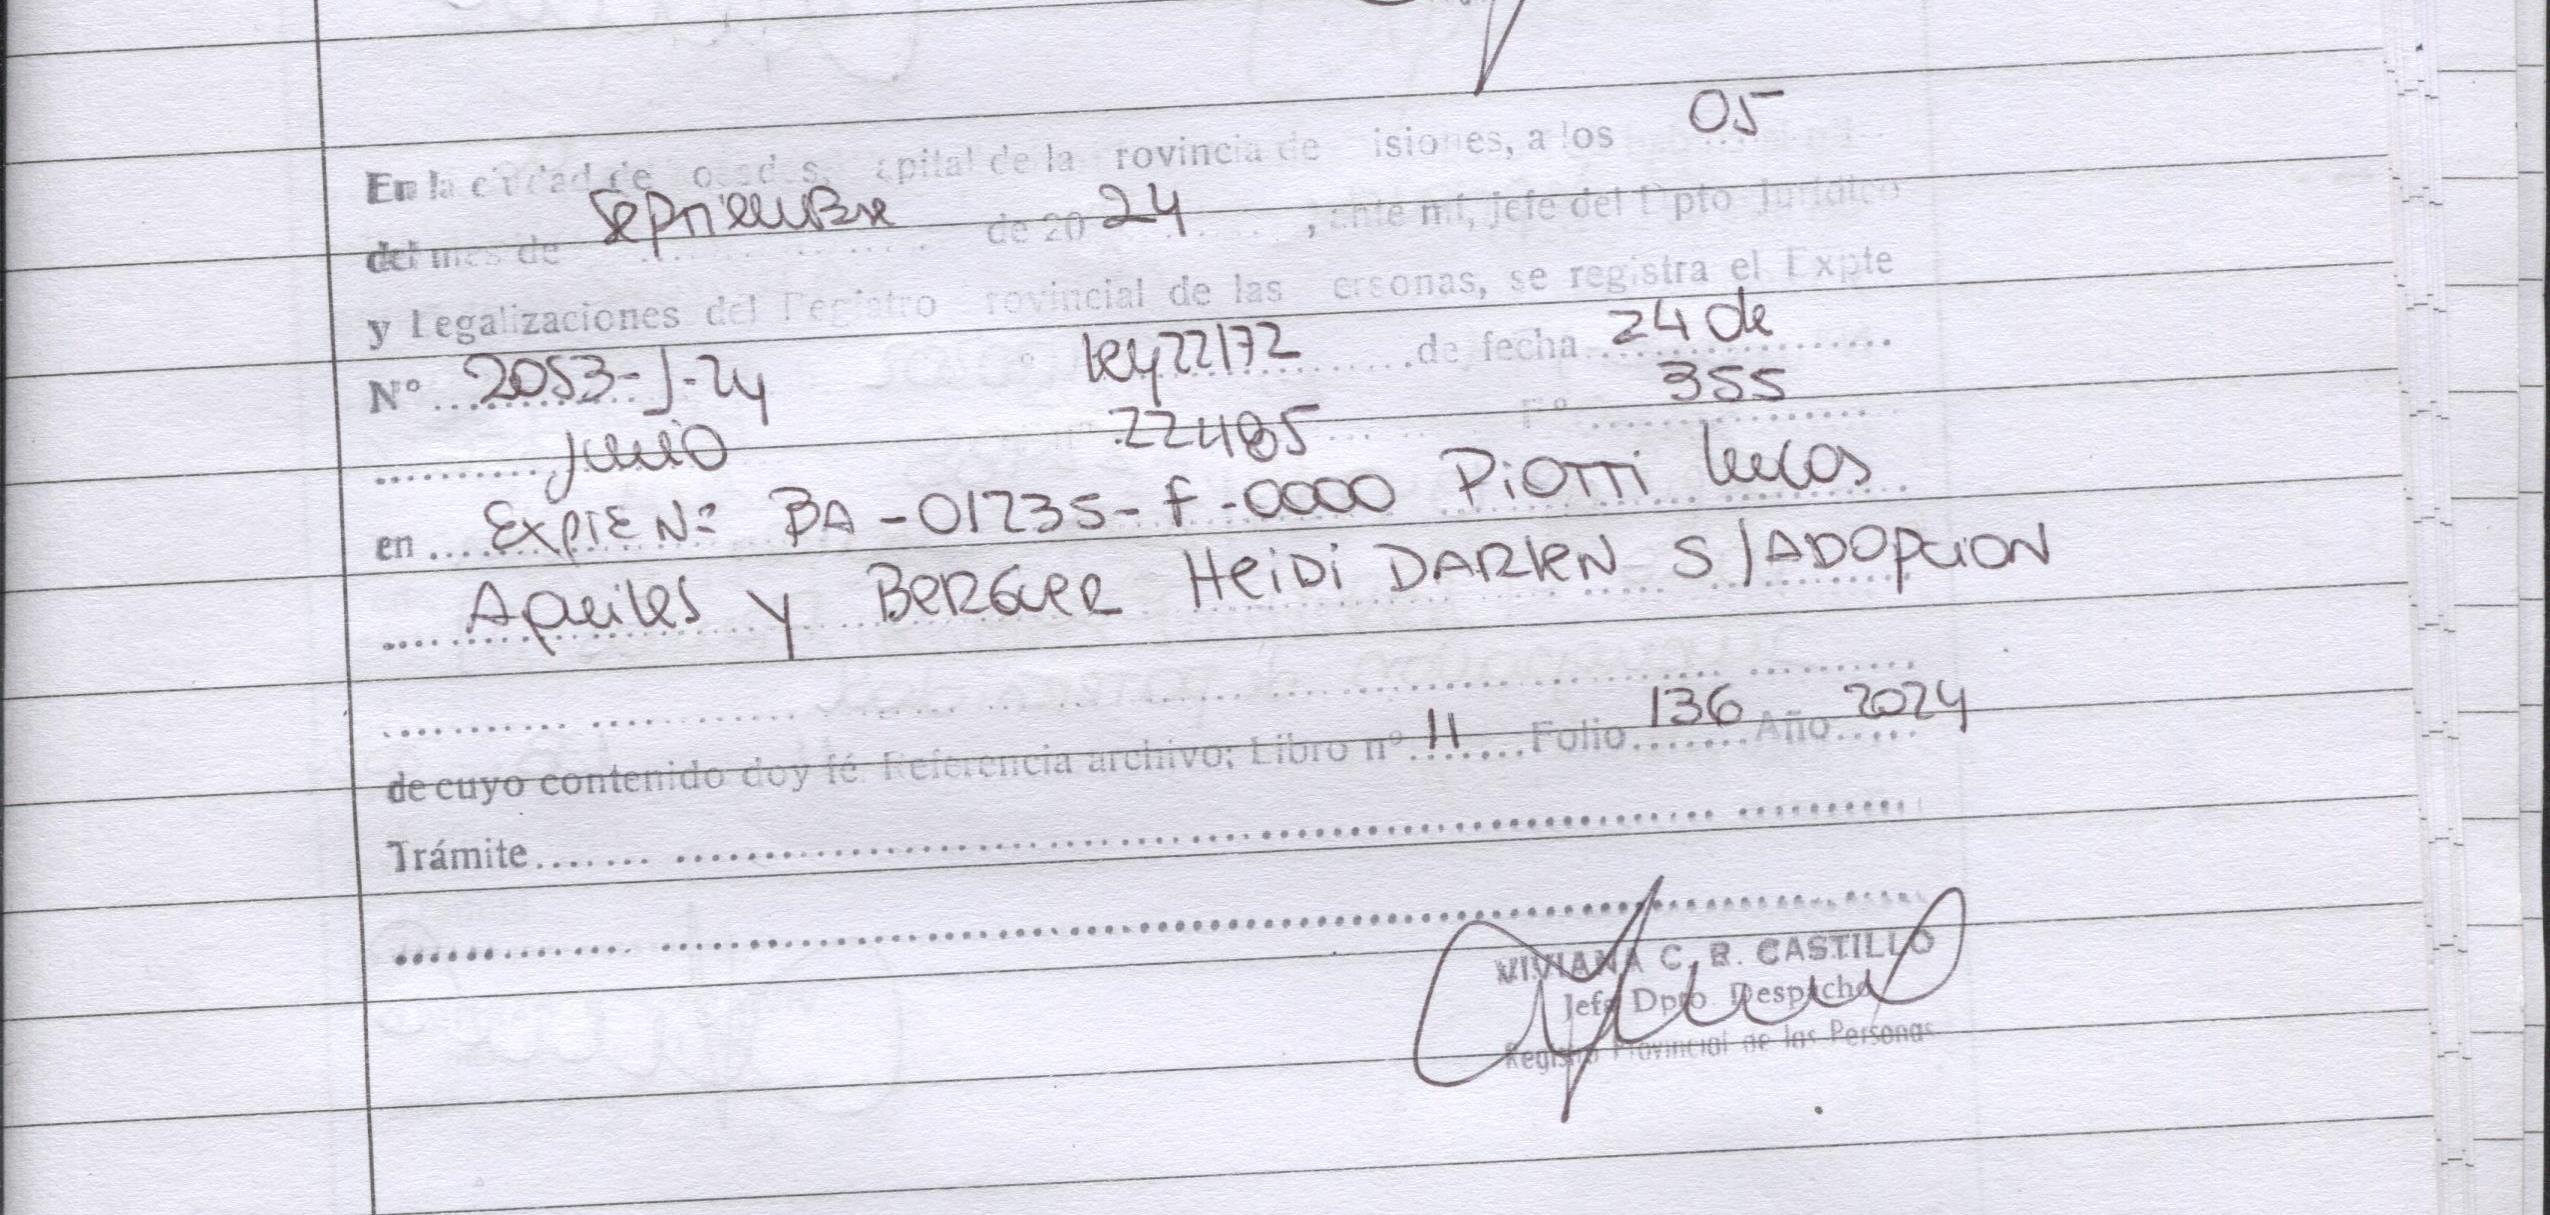 En la ciudad de osadas, apital de la rovincia de isiones, a los 05
del mes de Septiembre de 20 24, ante mi, jefe del Dpto Jurídico
y Legalizaciones del Registro rovincial de las ersonas, se registra el Expte
Nº 2053-J-24 ley 22172 de fecha 24 de
junio 22485 Fº 355
en Expte Nº BA-01235-F-0000 Piotti Lucas
Aquiles y BERGER HEIDI DARIEN S/ADOPCION
de cuyo contenido doy fé. Referencia archivo; Libro nº 11 Folio 136 Año 2024
Trámite
VIVIANA C. R. CASTILLO
Jefa Dpto Despacho
Registro Provincial de las Personas